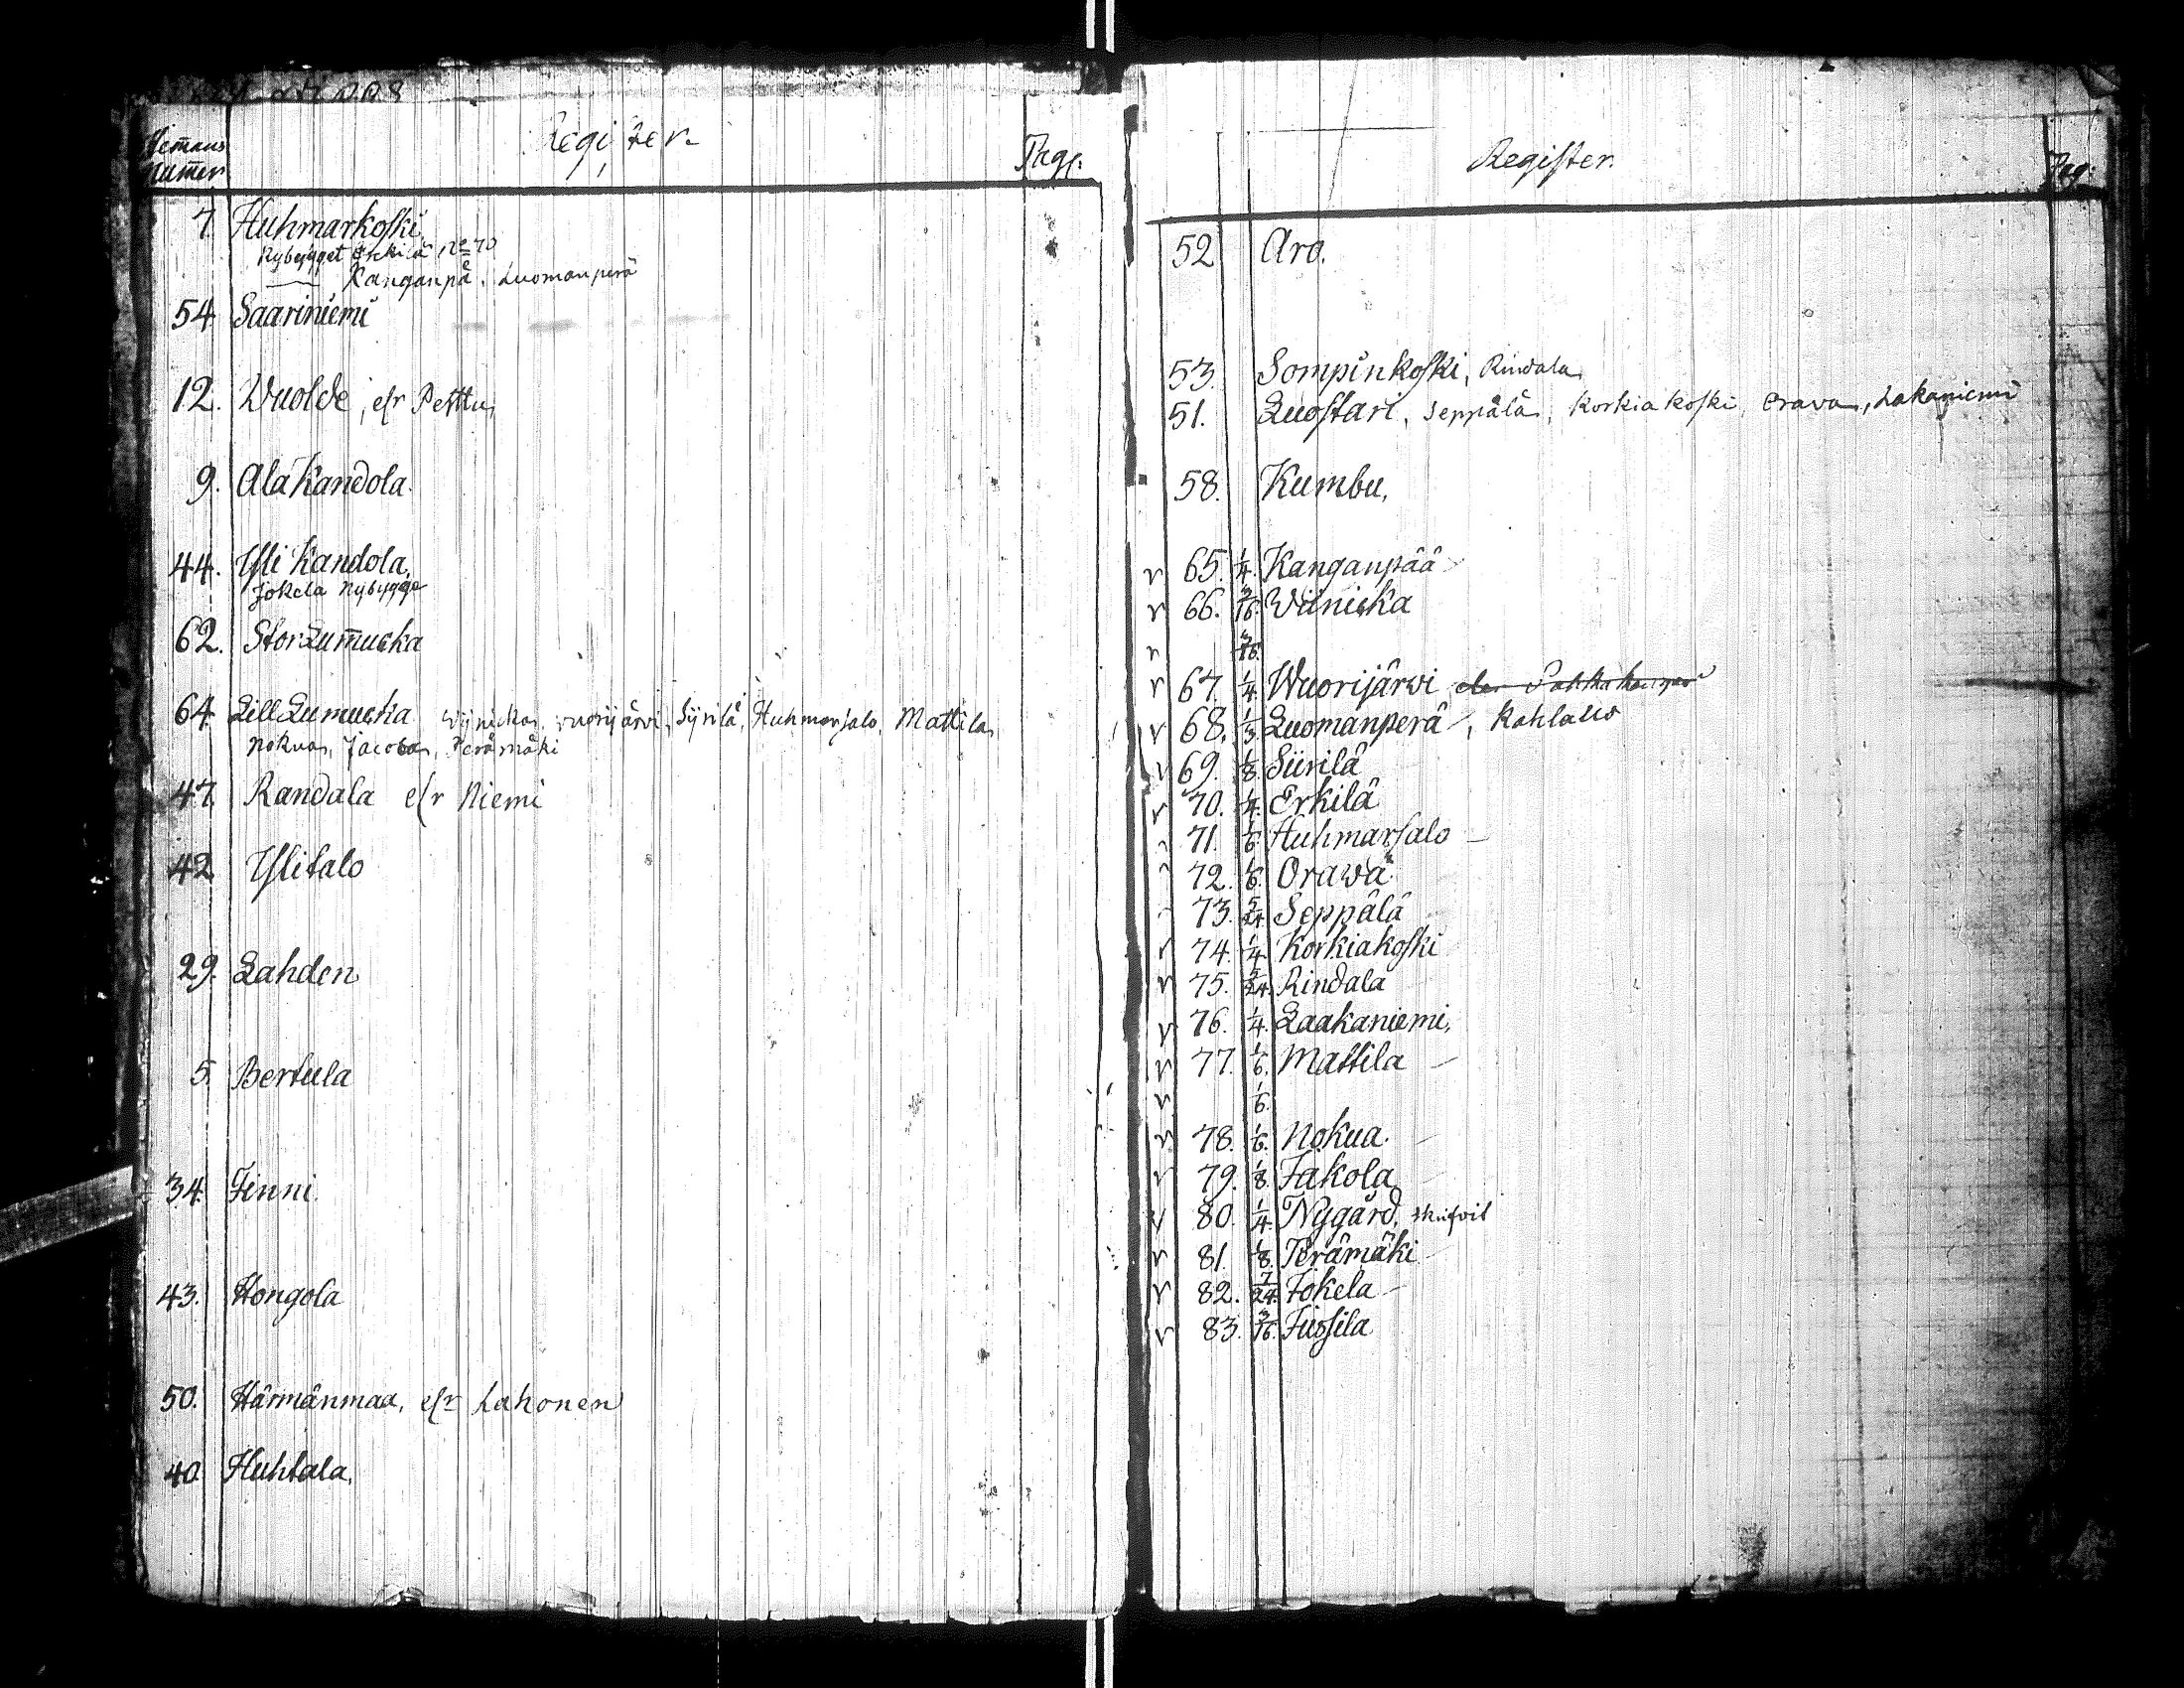 Hemans Numer Register. Pag:
7. Huhmarkoski
Nybygget Erkilä No 70
Kanganpä. Luomanperä
54 Saariniemi
12. Wuolde, elr Perttu
9. Ala Kandola.
44. Yli Kandola,
Jokela Nybygge
62. Stor Lum̄ucka
64 Lill Lumucka Wijnicka, Vuorijärvi, Sijrilä, Huhmarsalo, Mattila,
Nokua, Jacoba, Perämäki
47. Randala elr Niemi
42 Ylitalo
29. Lahden
5. Bertula
34. Finni.
43. Hongola
50. Härmänmaa, elr Lahonen
40. Huhtala.
Register. Pag:
52 Aro.
53. Sompinkoski, Rindala
51. Luostari, Seppälä, Korkiakoski, Orava, Lakaniemi
58. Kumbu,
65. 1/4. Kanganpää
66. 3/16. Wiinicka
3/16.
67. 1/4 Wuorijärwi
68. 1/3. Luomanperä, Kahlallo
69. 1/8. Siirilä
70. 1/4. Erkilä
71. 1/6. Huhmarsalo
72. 1/6. Orawa
73. 5/24. Seppälä
74. 1/4 Korkiakoski
75. 5/24. Rindala
76. 1/4. Laakaniemi,
77. 1/6. Mattila
1/6.
78. 1/6. Nokua.
79. 1/8. Jakola
80. 1/4. Nygård,
81. 1/8. Perämäki
82. 7/24. Jokela
83. 3/16. Jussila